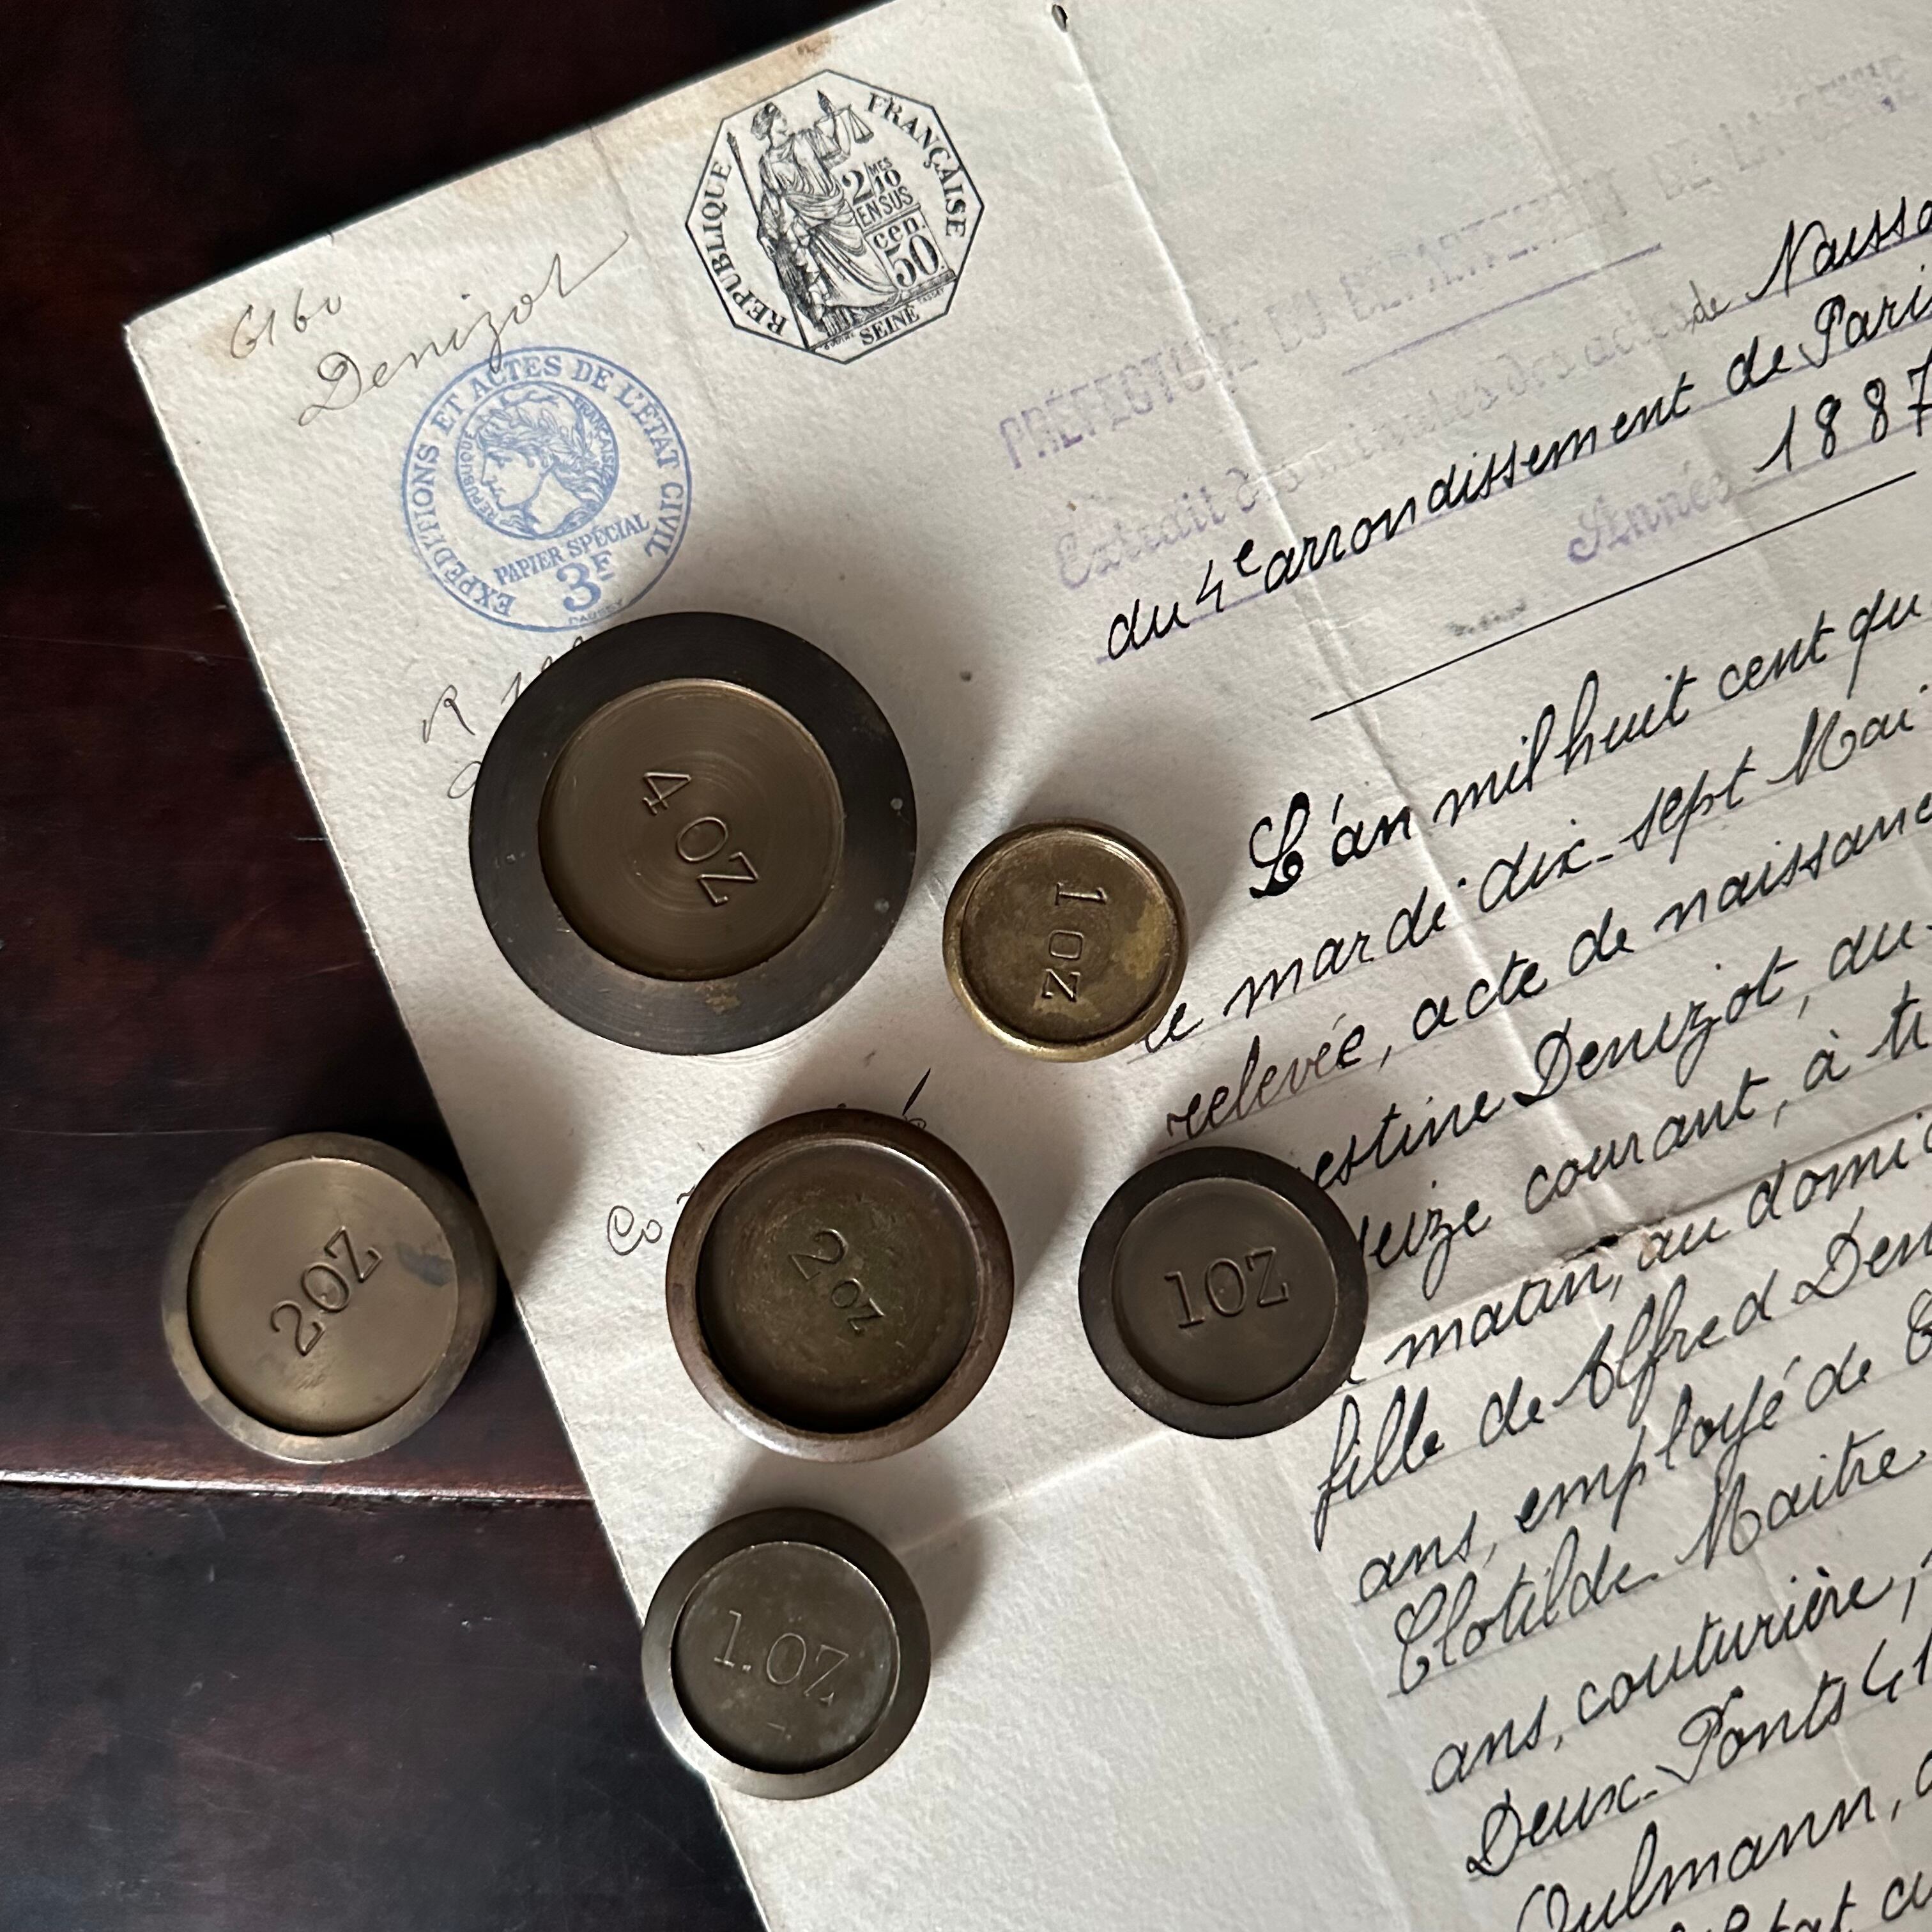 6160
Denizot
RÉPUBLIQUE FRANÇAISE
2/MES
10
EN SUS
cen.
50
SEINE
EXPÉDITIONS ET ACTES DE L'ÉTAT CIVIL
RÉPUBLIQUE FRANÇAISE
PAPIER SPÉCIAL
3F
PRÉFECTURE DU DÉPARTEMENT DE LA SEINE
Extrait des minutes des actes de
du 4e arrondissement de Paris
Année 1887
L'an mil huit cent
le mardi dix-sept Mai
relevée, acte de
estine Denizot,
courant, à
matin, au
fille de Alfred
ans, employé de
Clotilde Maitre
ans, couturière,
Deux-Ponts 41
4 OZ
1 OZ
2 OZ
2 OZ
1 OZ
1. OZ